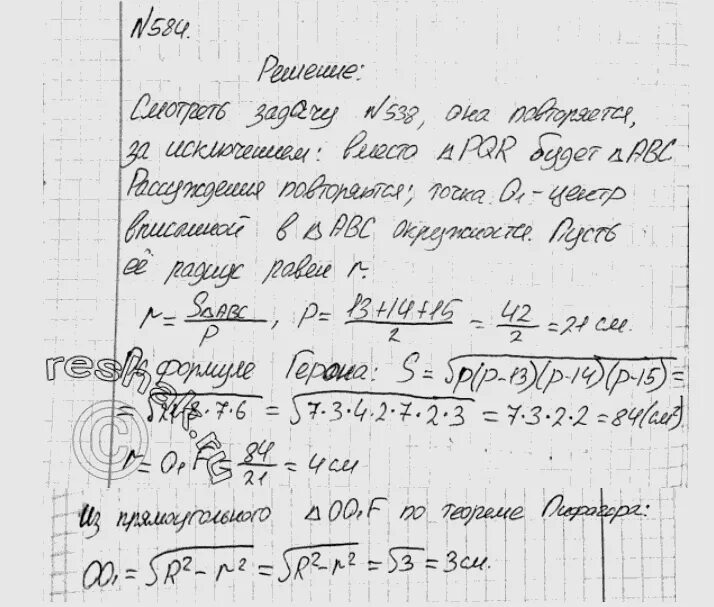 №584.
Решение:
Смотреть задачу №538, она повторяется,
за исключением: вместо △PQR будет △ABC
Рассуждения повторяются; точка O₁-центр
вписанной в △ABC окружности. Пусть
её радиус равен r.
r = S△ABC / P, P = (13+14+15)/2 = 42/2 = 21 см.
формуле Герона: S = √(p(p-13)(p-14)(p-15)) =
= √(21·8·7·6) = √(7·3·4·2·7·2·3) = 7·3·2·2 = 84(см²)
r = O₁F = 84/21 = 4 см
Из прямоугольного △OO₁F по теореме Пифагора:
OO₁ = √(R²-r²) = √(R²-r²) = √3 = 3 см.
reshak.ru
©